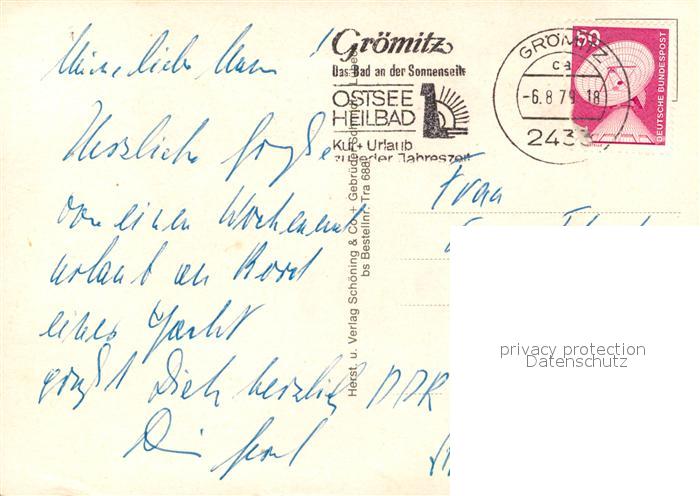 Meine liebe
Herzliche Grüße
von einem Wochenend
urlaub an Bord
einer Yacht
grüßt Dich herzlich
Dein
Grömitz
Das Bad an der Sonnenseite
OSTSEE
HEILBAD
Kur + Urlaub
zu jeder Jahreszeit
GRÖMITZ
ca
-6.8.79 18
2433
50
DEUTSCHE BUNDESPOST
Herst. u. Verlag Schöning & Co + Gebrüder Schmidt Lübeck
bs Bestellnr. Tra 688
Frau
DDR
privacy protection
Datenschutz